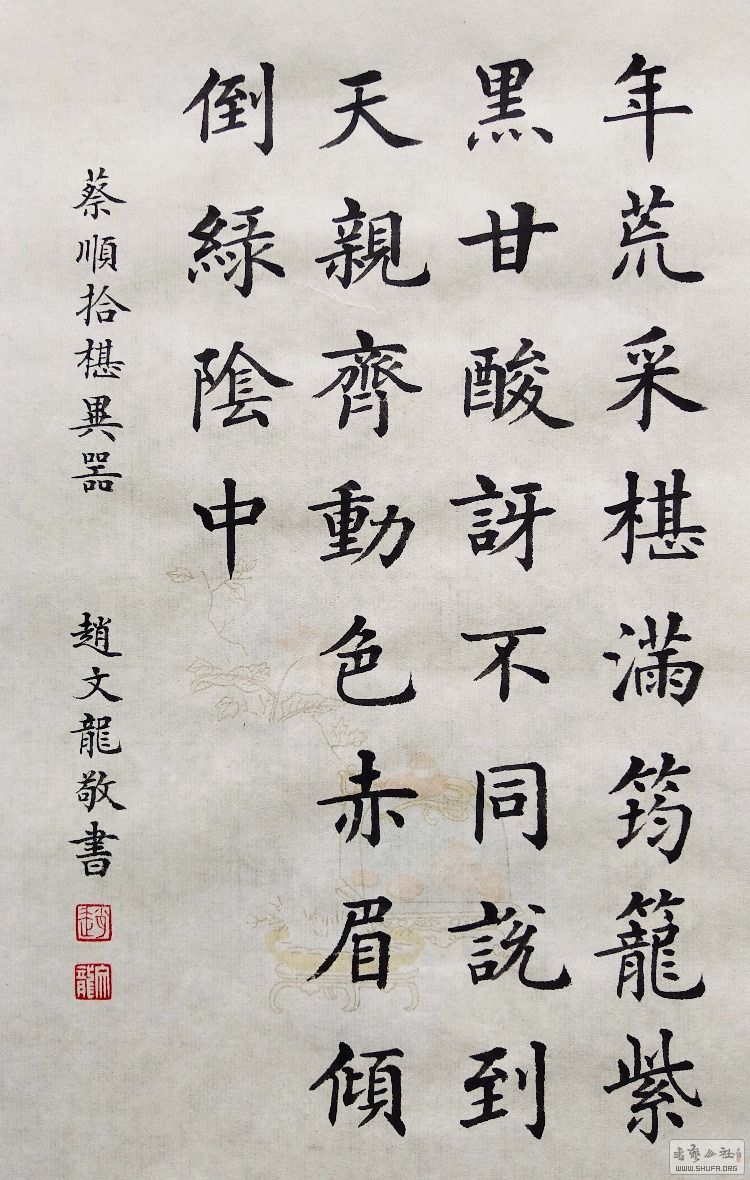 年荒采椹滿筠籠紫
黑甘酸訝不同說到
天親齊動色赤眉傾
倒綠陰中
蔡順拾椹異器
趙文龍敬書
書藝公社
WWW.SHUFA.ORG